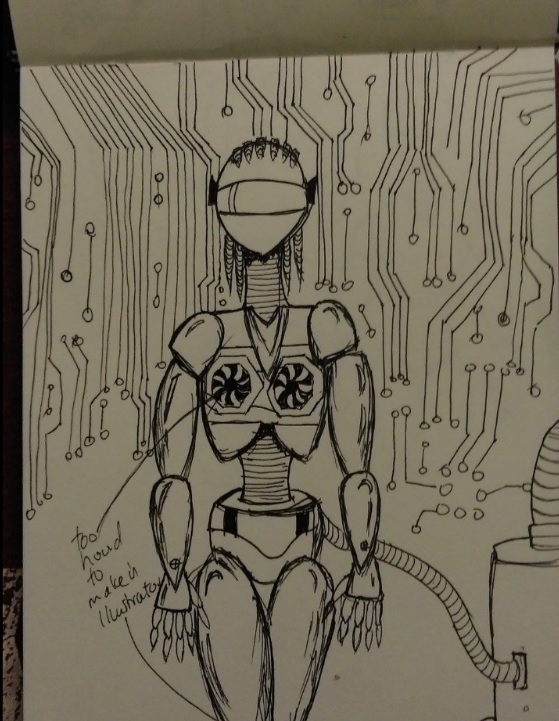 too
hard
to
make in
Illustrator